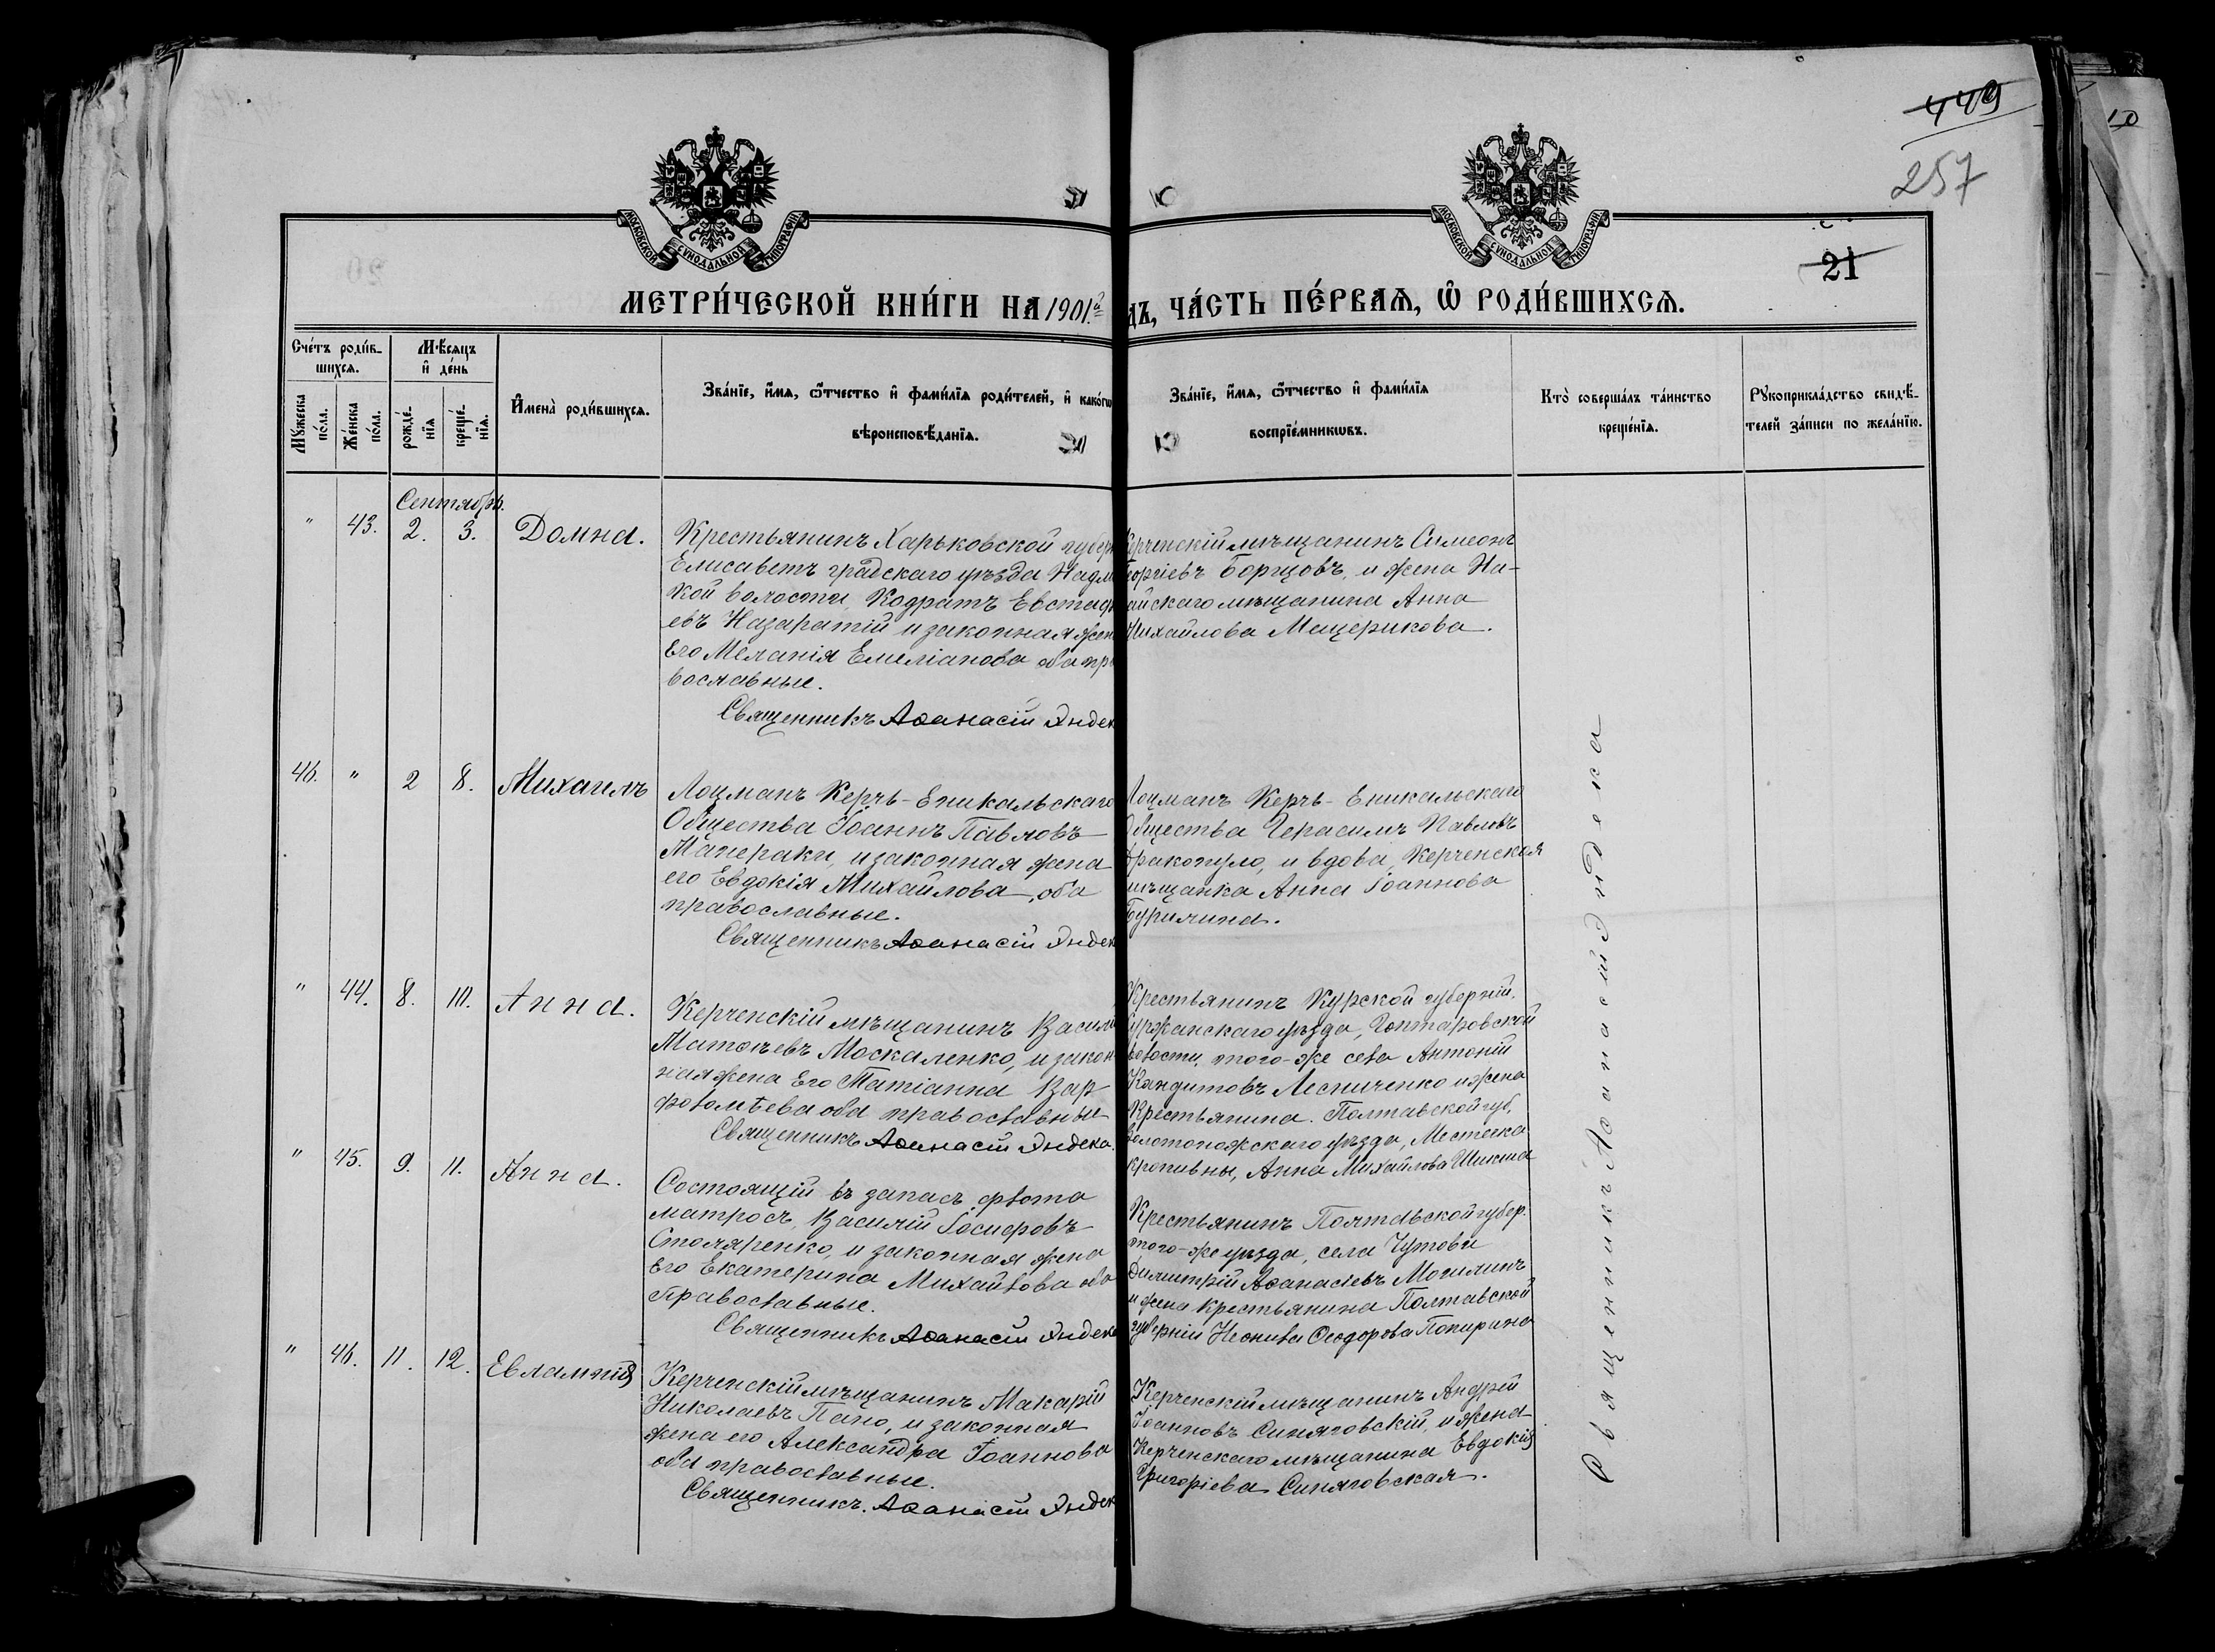 449
257
21
МОСКОВСКОЙ СѴНОДАЛЬНОЙ ТИПОГРАФІИ
МОСКОВСКОЙ СѴНОДАЛЬНОЙ ТИПОГРАФІИ
МЕТРИ́ЧЕСКОЙ КНИ́ГИ НА 1901.й
ДЪ, ЧА́СТЬ ПЕ́РВАѦ, Ѡ҆ РОДИ́ВШИХСѦ.
Сче́тъ роди́в-
шихсѧ.
Мꙋ́жеска
по́лꙋ.
Же́нска
по́лꙋ.
Мѣ́сѧцъ
и҆ де́нь
рожде́-
нїѧ
креще́-
нїѧ.
И҆мена̀ роди́вшихсѧ.
Зва́нїе, и҆́мѧ, ѻ҆́тчество и҆ фами́лїѧ роди́телей, и҆ како́гѡ
вѣроисповѣ́данїѧ.
Зва́нїе, и҆́мѧ, ѻ҆́тчество и҆ фами́лїѧ
воспрїе́мникѡвъ.
Кто̀ соверша́лъ та́инство
креще́нїѧ.
Рꙋкоприкла́дство свидѣ́-
телей за́писи по жела́нїю.
Сентябрь.
" 43. 2. 3. Домна.
Крестьянинъ Харьковской губер
Елисаветъ градскаго уѣзда Надл
кой волости, Кодратъ Евстаф
евъ Назаратій и законная жен
Его Меланія Емеліанова оба пр
вославные.
Священникъ Аѳанасій Эндек
ерченскій мѣщанинъ Симеонъ
еоргіевъ Борцовъ, и жена На-
айскаго мѣщанина Анна
Михайлова Мащерикова.
46. " 2 8. Михаилъ
Лоцманъ Керчь-Еникальскаго
Общества Іоаннъ Павловъ
Манераки, и законная жена
его Евдокія Михайлова, оба
православные.
Священникъ Аѳанасій Эндек
Лоцманъ Керчь-Еникальскаго
Общества Герасимъ Павловъ
ракопуло, и вдова, Керченская
мѣщанка Анна Іоаннова
Бурилина.
" 44. 8. 10. Анна.
Керченскій мѣщанинъ Васил
Матѳеевъ Москаленко, и закон
ная жена Его Татіанна Вар-
фоломѣева оба православные
Священникъ Аѳанасій Эндека.
Крестьянинъ Курской губерній,
уржанскаго уѣзда, Гонтаровской
волости, того-же села Антоній
Кандитовъ Лесниченко и жена
Крестьянина. Полтавской губ,
Золотоножскаго уѣзда, Местечка
Кропивны, Анна Михайлова Шикина
" 45. 9. 11. Анна.
Состоящій въ запасѣ флота
матросъ Василій Іосифовъ
Столяренко, и законная жена
Его Екатерина Михайлова оба
Православные.
Священникъ Аѳанасій Эндека
Крестьянинъ Полтавской губер.
того-же уѣзда, села Чутова
Димитрій Аѳанасіевъ Могилинъ
и жена Крестьянина Полтавской
губерніи Неонила Ѳеодорова Попирина
" 46. 11. 12. Евлампія
Керченскій мѣщанинъ Макарій
Николаевъ Пано, и законная
жена его Александра Іоаннова
оба православные.
Священникъ. Аѳанасій Эндек
Керченскій мѣщанинъ Андрей
Іоанновъ Синяговскій, и жена
Керченскаго мѣщанина Евдокія
Григоріева Синяговская.
Священникъ Аѳанасій Эндека